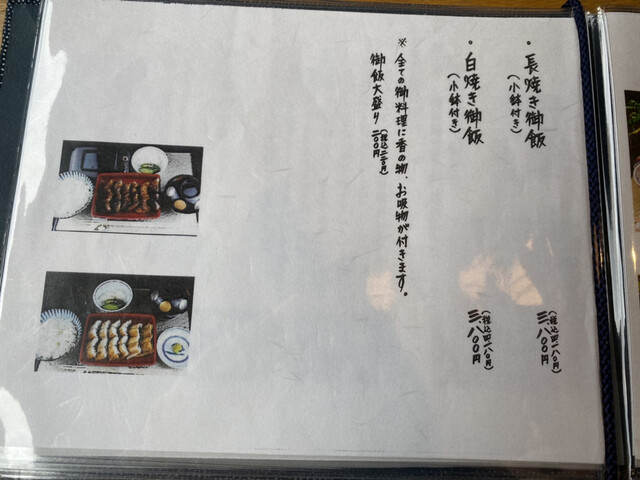 ・長焼き御飯
(小鉢付き)
三、八〇〇円
(税込四一八〇円)
・白焼き御飯
(小鉢付き)
三、八〇〇円
(税込四一八〇円)
※全ての御料理に香の物、お吸物が付きます。
御飯大盛り 二〇〇円
(税込二二〇円)